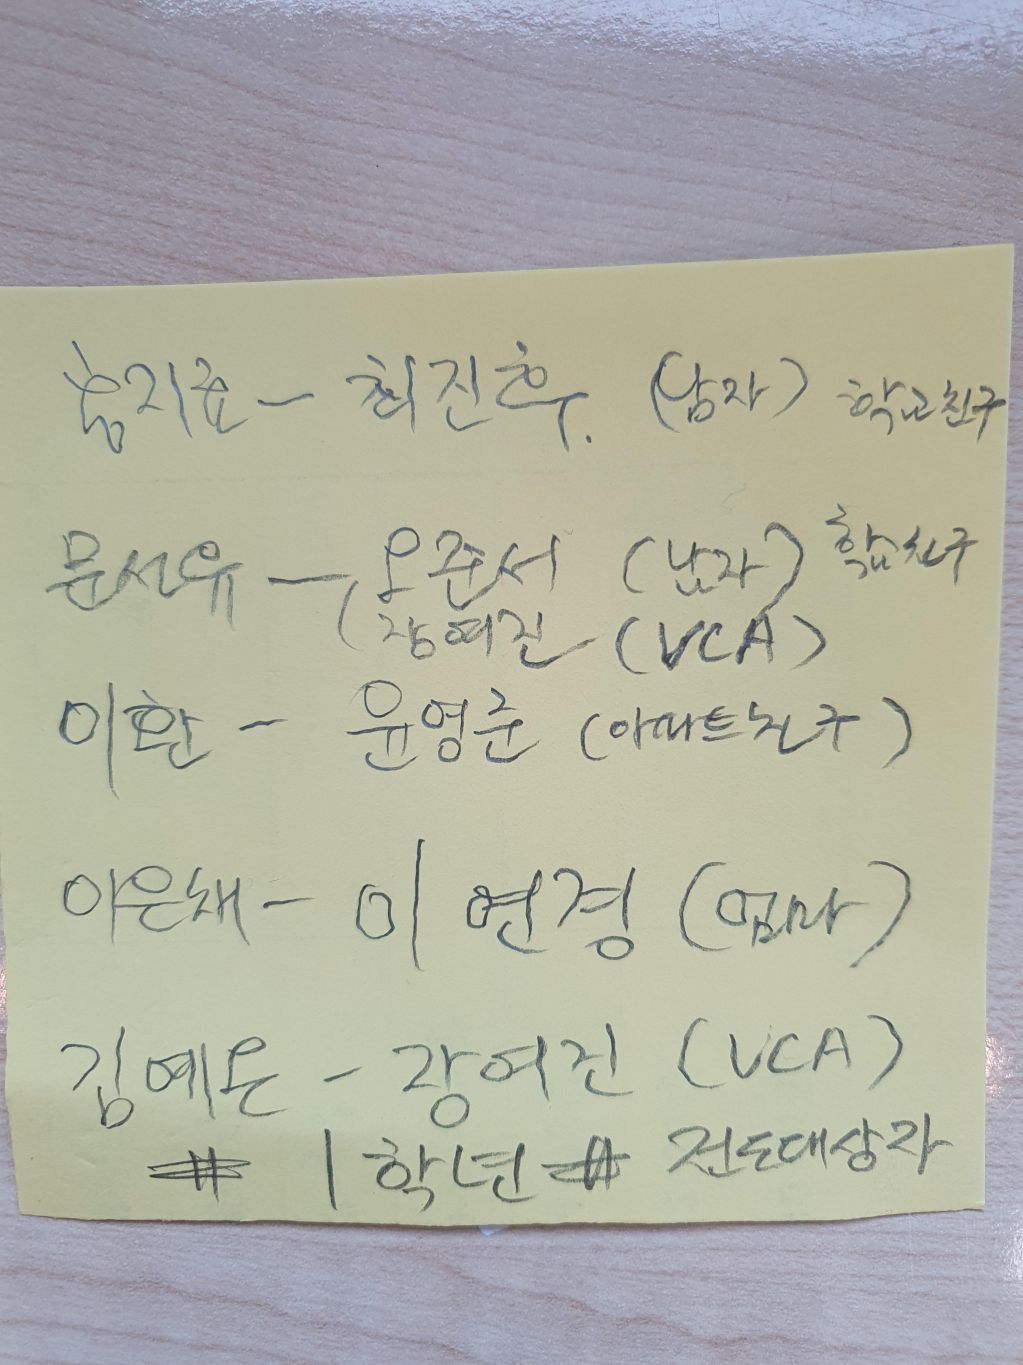 홍지호 - 최진호. (남자) 학교친구
문선유 - 오준서 (남자) 학교친구
( 장여진 (VCA)
이환 - 윤영준 (아파트친구)
이은채 - 이연경 (엄마)
김예은 - 장여진 (VCA)
# 1학년 # 전도대상자